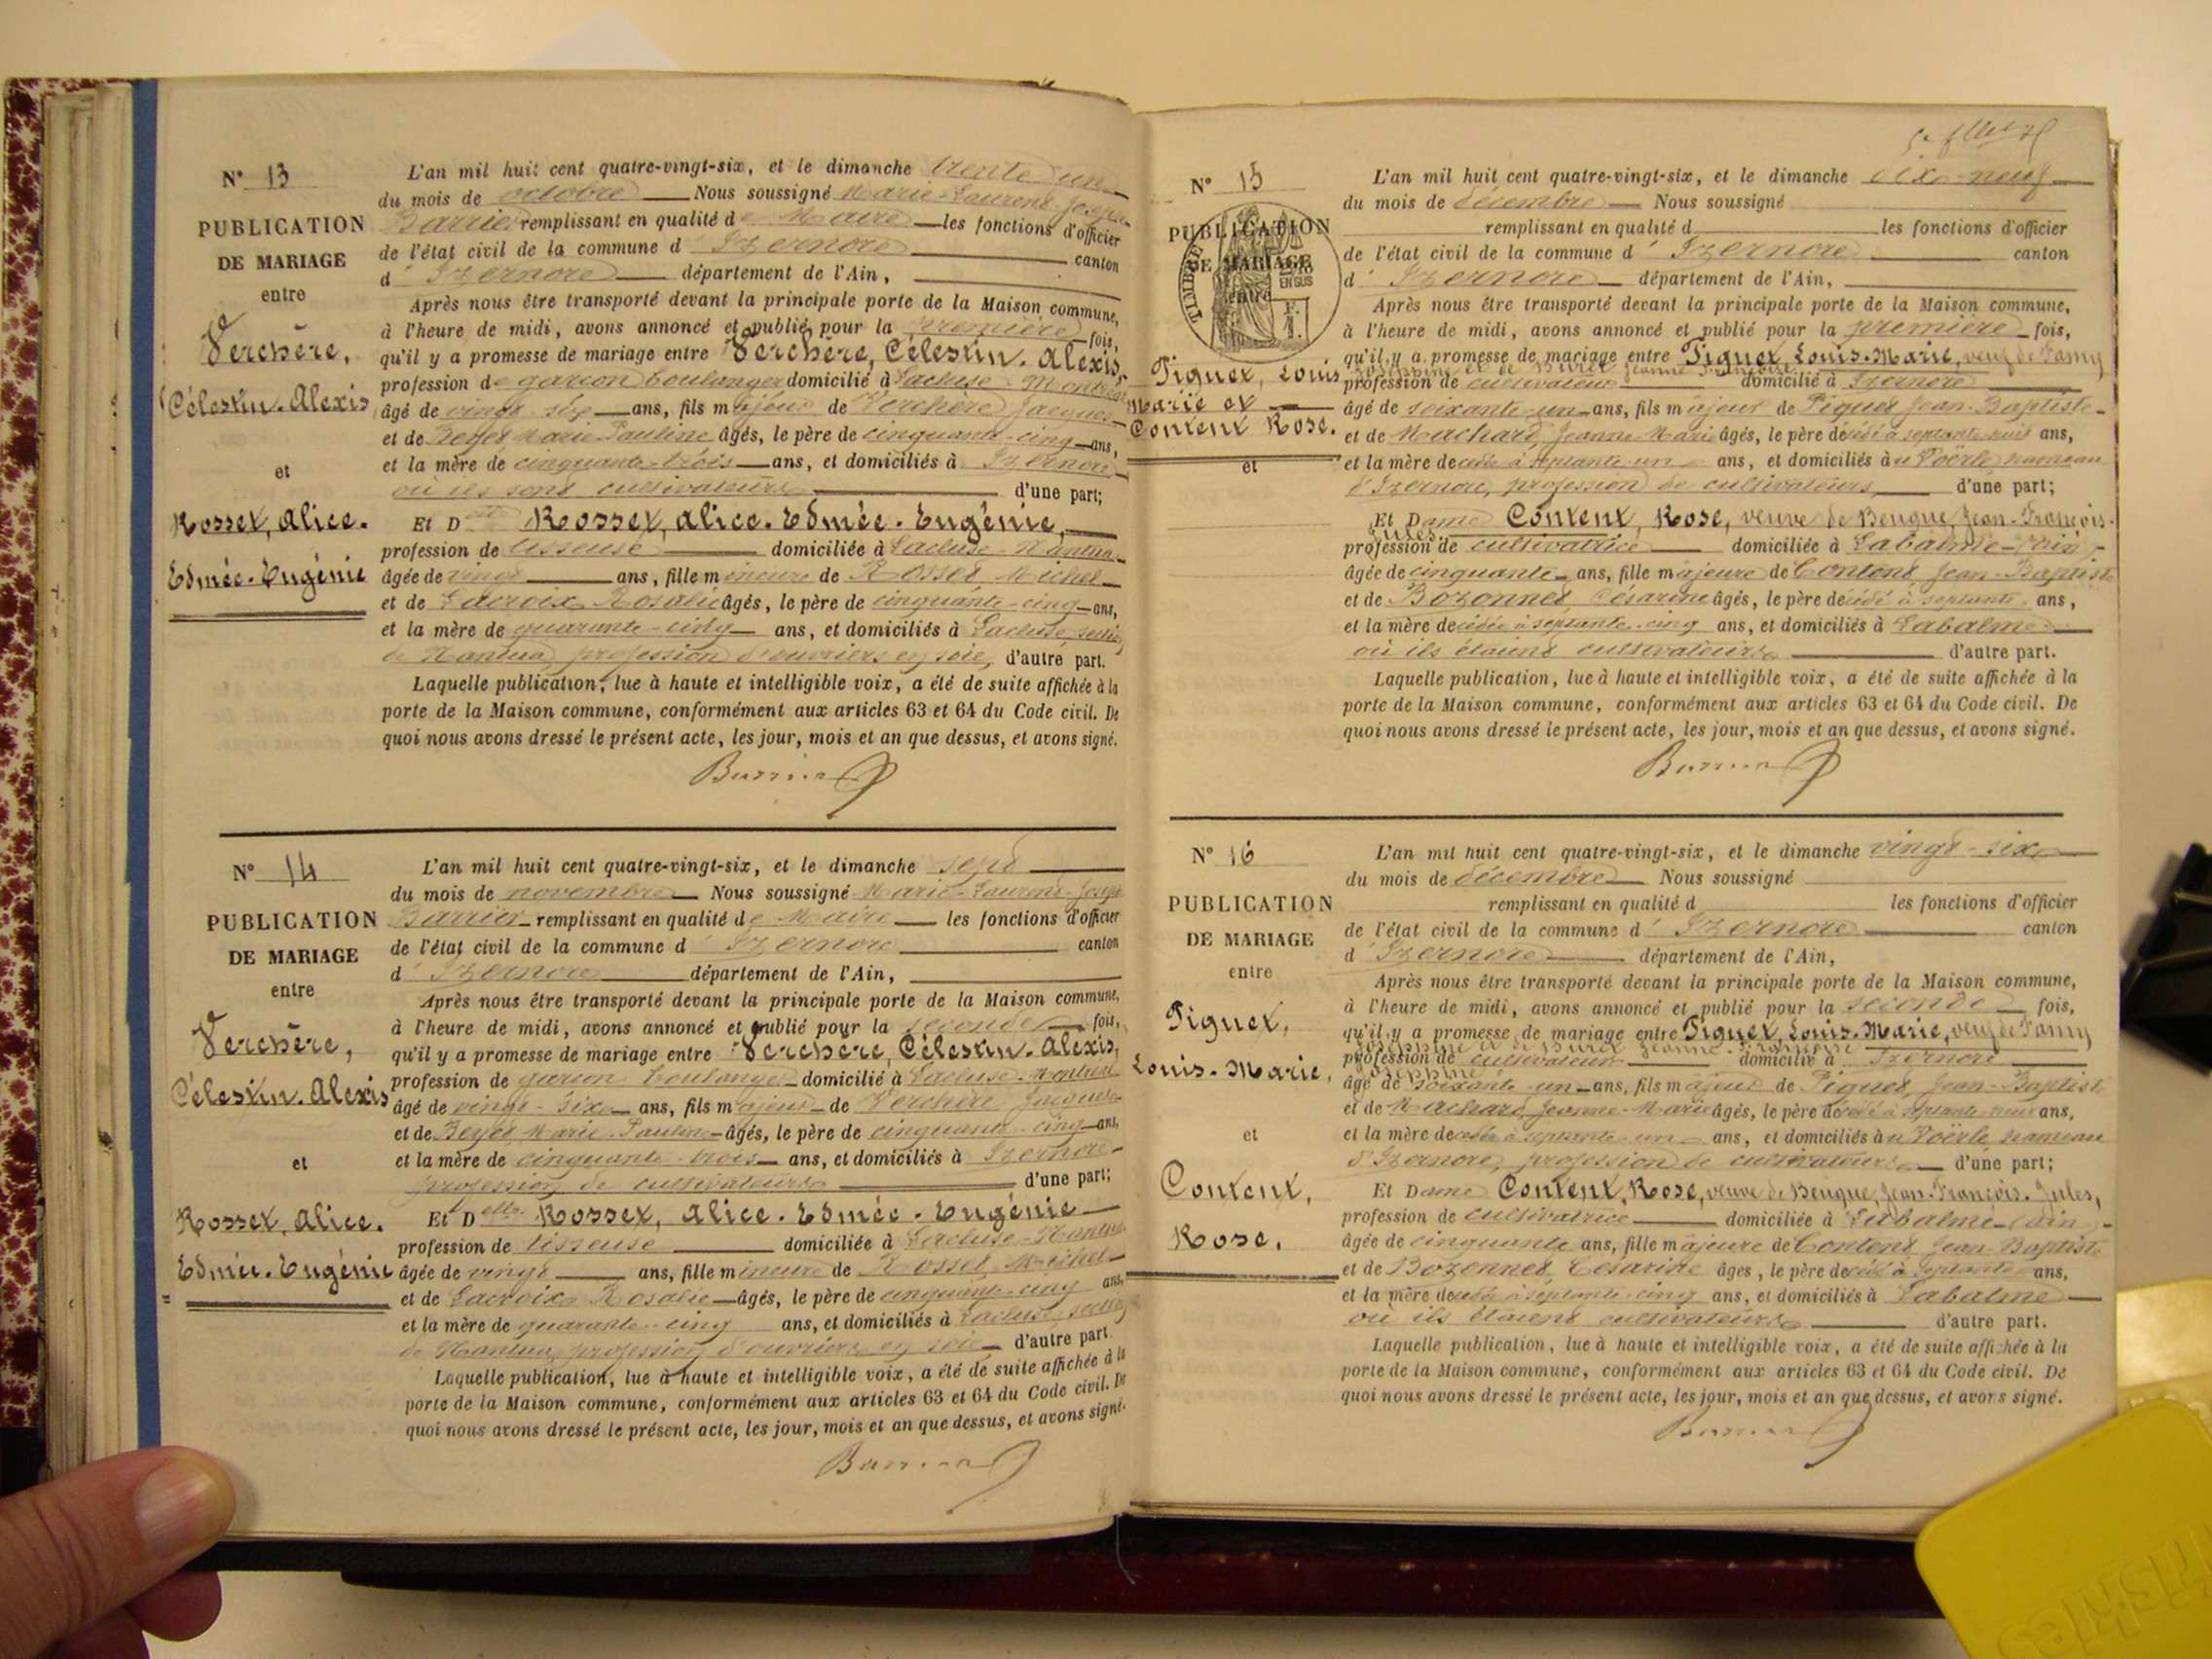 N° 13
PUBLICATION
DE MARIAGE
entre
Verchère,
Célestin. Alexis
et
Rosset, Alice.
Edmée. Eugénie
L'an mil huit cent quatre-vingt-six, et le dimanche trente un
du mois de octobre Nous soussigné Marie-Laurent-Joseph
Barrier remplissant en qualité de Maire les fonctions d'officier
de l'état civil de la commune d'Izernore canton
d'Izernore département de l'Ain,
Après nous être transporté devant la principale porte de la Maison commune,
à l'heure de midi, avons annoncé et publié pour la première fois,
qu'il y a promesse de mariage entre Verchère, Célestin. Alexis,
profession de garçon boulanger domicilié à Lacluse-Montréal
âgé de vingt-six ans, fils majeur de Verchère Jacques
et de Beyet Marie-Pauline âgés, le père de cinquante-cinq ans,
et la mère de cinquante-trois ans, et domiciliés à Izernore
où ils sont cultivateurs d'une part;
Et Delle Rosset, Alice. Edmée. Eugénie,
profession de tisseuse domiciliée à Lacluse-Nantua
âgée de vingt ans, fille mineure de Rosset Michel
et de Lacroix Rosalie âgés, le père de cinquante-cinq ans,
et la mère de quarante-cinq ans, et domiciliés à Lacluse, section
de Nantua, profession d'ouvriers en soie, d'autre part.
Laquelle publication, lue à haute et intelligible voix, a été de suite affichée à la
porte de la Maison commune, conformément aux articles 63 et 64 du Code civil. De
quoi nous avons dressé le présent acte, les jour, mois et an que dessus, et avons signé.
Barrier
N° 14
PUBLICATION
DE MARIAGE
entre
Verchère,
Célestin. Alexis
et
Rosset, Alice.
Edmée. Eugénie
L'an mil huit cent quatre-vingt-six, et le dimanche sept
du mois de novembre Nous soussigné Marie-Laurent-Joseph
Barrier remplissant en qualité de Maire les fonctions d'officier
de l'état civil de la commune d'Izernore canton
d'Izernore département de l'Ain,
Après nous être transporté devant la principale porte de la Maison commune,
à l'heure de midi, avons annoncé et publié pour la seconde fois,
qu'il y a promesse de mariage entre Verchère, Célestin. Alexis,
profession de garçon boulanger domicilié à Lacluse-Montréal
âgé de vingt-six ans, fils majeur de Verchère Jacques
et de Beyet Marie-Pauline âgés, le père de cinquante-cinq ans,
et la mère de cinquante-trois ans, et domiciliés à Izernore
profession de cultivateurs d'une part;
Et Delle Rosset, Alice. Edmée. Eugénie
profession de tisseuse domiciliée à Lacluse-Nantua
âgée de vingt ans, fille mineure de Rosset Michel
et de Lacroix Rosalie âgés, le père de cinquante-cinq ans,
et la mère de quarante-cinq ans, et domiciliés à Lacluse, section
de Nantua, profession d'ouvriers en soie d'autre part.
Laquelle publication, lue à haute et intelligible voix, a été de suite affichée à la
porte de la Maison commune, conformément aux articles 63 et 64 du Code civil. De
quoi nous avons dressé le présent acte, les jour, mois et an que dessus, et avons signé.
Barrier
N° 15
PUBLICATION
DE MARIAGE
entre
TIMBRE
EN SUS
Piquet, Louis
Marie et
Content Rose.
et
L'an mil huit cent quatre-vingt-six, et le dimanche dix-neuf
du mois de décembre Nous soussigné
remplissant en qualité d les fonctions d'officier
de l'état civil de la commune d'Izernore canton
d'Izernore département de l'Ain,
Après nous être transporté devant la principale porte de la Maison commune,
à l'heure de midi, avons annoncé et publié pour la première fois,
qu'il y a promesse de mariage entre Piquet, Louis-Marie, veuf de Famy
Joséphine et de Buret Jeanne Françoise
profession de cultivateur domicilié à Izernore
âgé de soixante-un ans, fils majeur de Piquet Jean-Baptiste
et de Machard, Jeanne-Marie âgés, le père décédé à septante-huit ans,
et la mère décédée à septante-un ans, et domiciliés à hameau
d'Izernore, profession de cultivateurs d'une part;
Et Dame Content, Rose, veuve de Bengue, Jean-François-
Jules,
profession de cultivatrice domiciliée à Labalme (Ain)
âgée de cinquante ans, fille majeure de Content Jean-Baptiste
et de Bozonnet Césarine âgés, le père décédé à septante ans,
et la mère décédée à septante-cinq ans, et domiciliés à Labalme
où ils étaient cultivateurs d'autre part.
Laquelle publication, lue à haute et intelligible voix, a été de suite affichée à la
porte de la Maison commune, conformément aux articles 63 et 64 du Code civil. De
quoi nous avons dressé le présent acte, les jour, mois et an que dessus, et avons signé.
Barrier
N° 16
PUBLICATION
DE MARIAGE
entre
Piquet,
Louis-Marie,
et
Content,
Rose.
L'an mil huit cent quatre-vingt-six, et le dimanche vingt-six
du mois de décembre Nous soussigné
remplissant en qualité d les fonctions d'officier
de l'état civil de la commune d'Izernore canton
d'Izernore département de l'Ain,
Après nous être transporté devant la principale porte de la Maison commune,
à l'heure de midi, avons annoncé et publié pour la seconde fois,
qu'il y a promesse de mariage entre Piquet, Louis-Marie, veuf de Famy
Joséphine et de Buret Jeanne-Françoise
profession de cultivateur domicilié à Izernore
Joséphine
âgé de soixante-un ans, fils majeur de Piquet, Jean-Baptiste
et de Machard, Jeanne-Marie âgés, le père décédé à ans,
et la mère décédée à septante-un ans, et domiciliés à hameau
d'Izernore, profession de cultivateurs d'une part;
Et Dame Content, Rose, veuve de Bengue, Jean-François-Jules,
profession de cultivatrice domiciliée à Labalme (Ain)
âgée de cinquante ans, fille majeure de Content Jean-Baptiste
et de Bozonnet Césarine âgés, le père décédé à septante ans,
et la mère décédée à septante-cinq ans, et domiciliés à Labalme
où ils étaient cultivateurs d'autre part.
Laquelle publication, lue à haute et intelligible voix, a été de suite affichée à la
porte de la Maison commune, conformément aux articles 63 et 64 du Code civil. De
quoi nous avons dressé le présent acte, les jour, mois et an que dessus, et avons signé.
Barrier